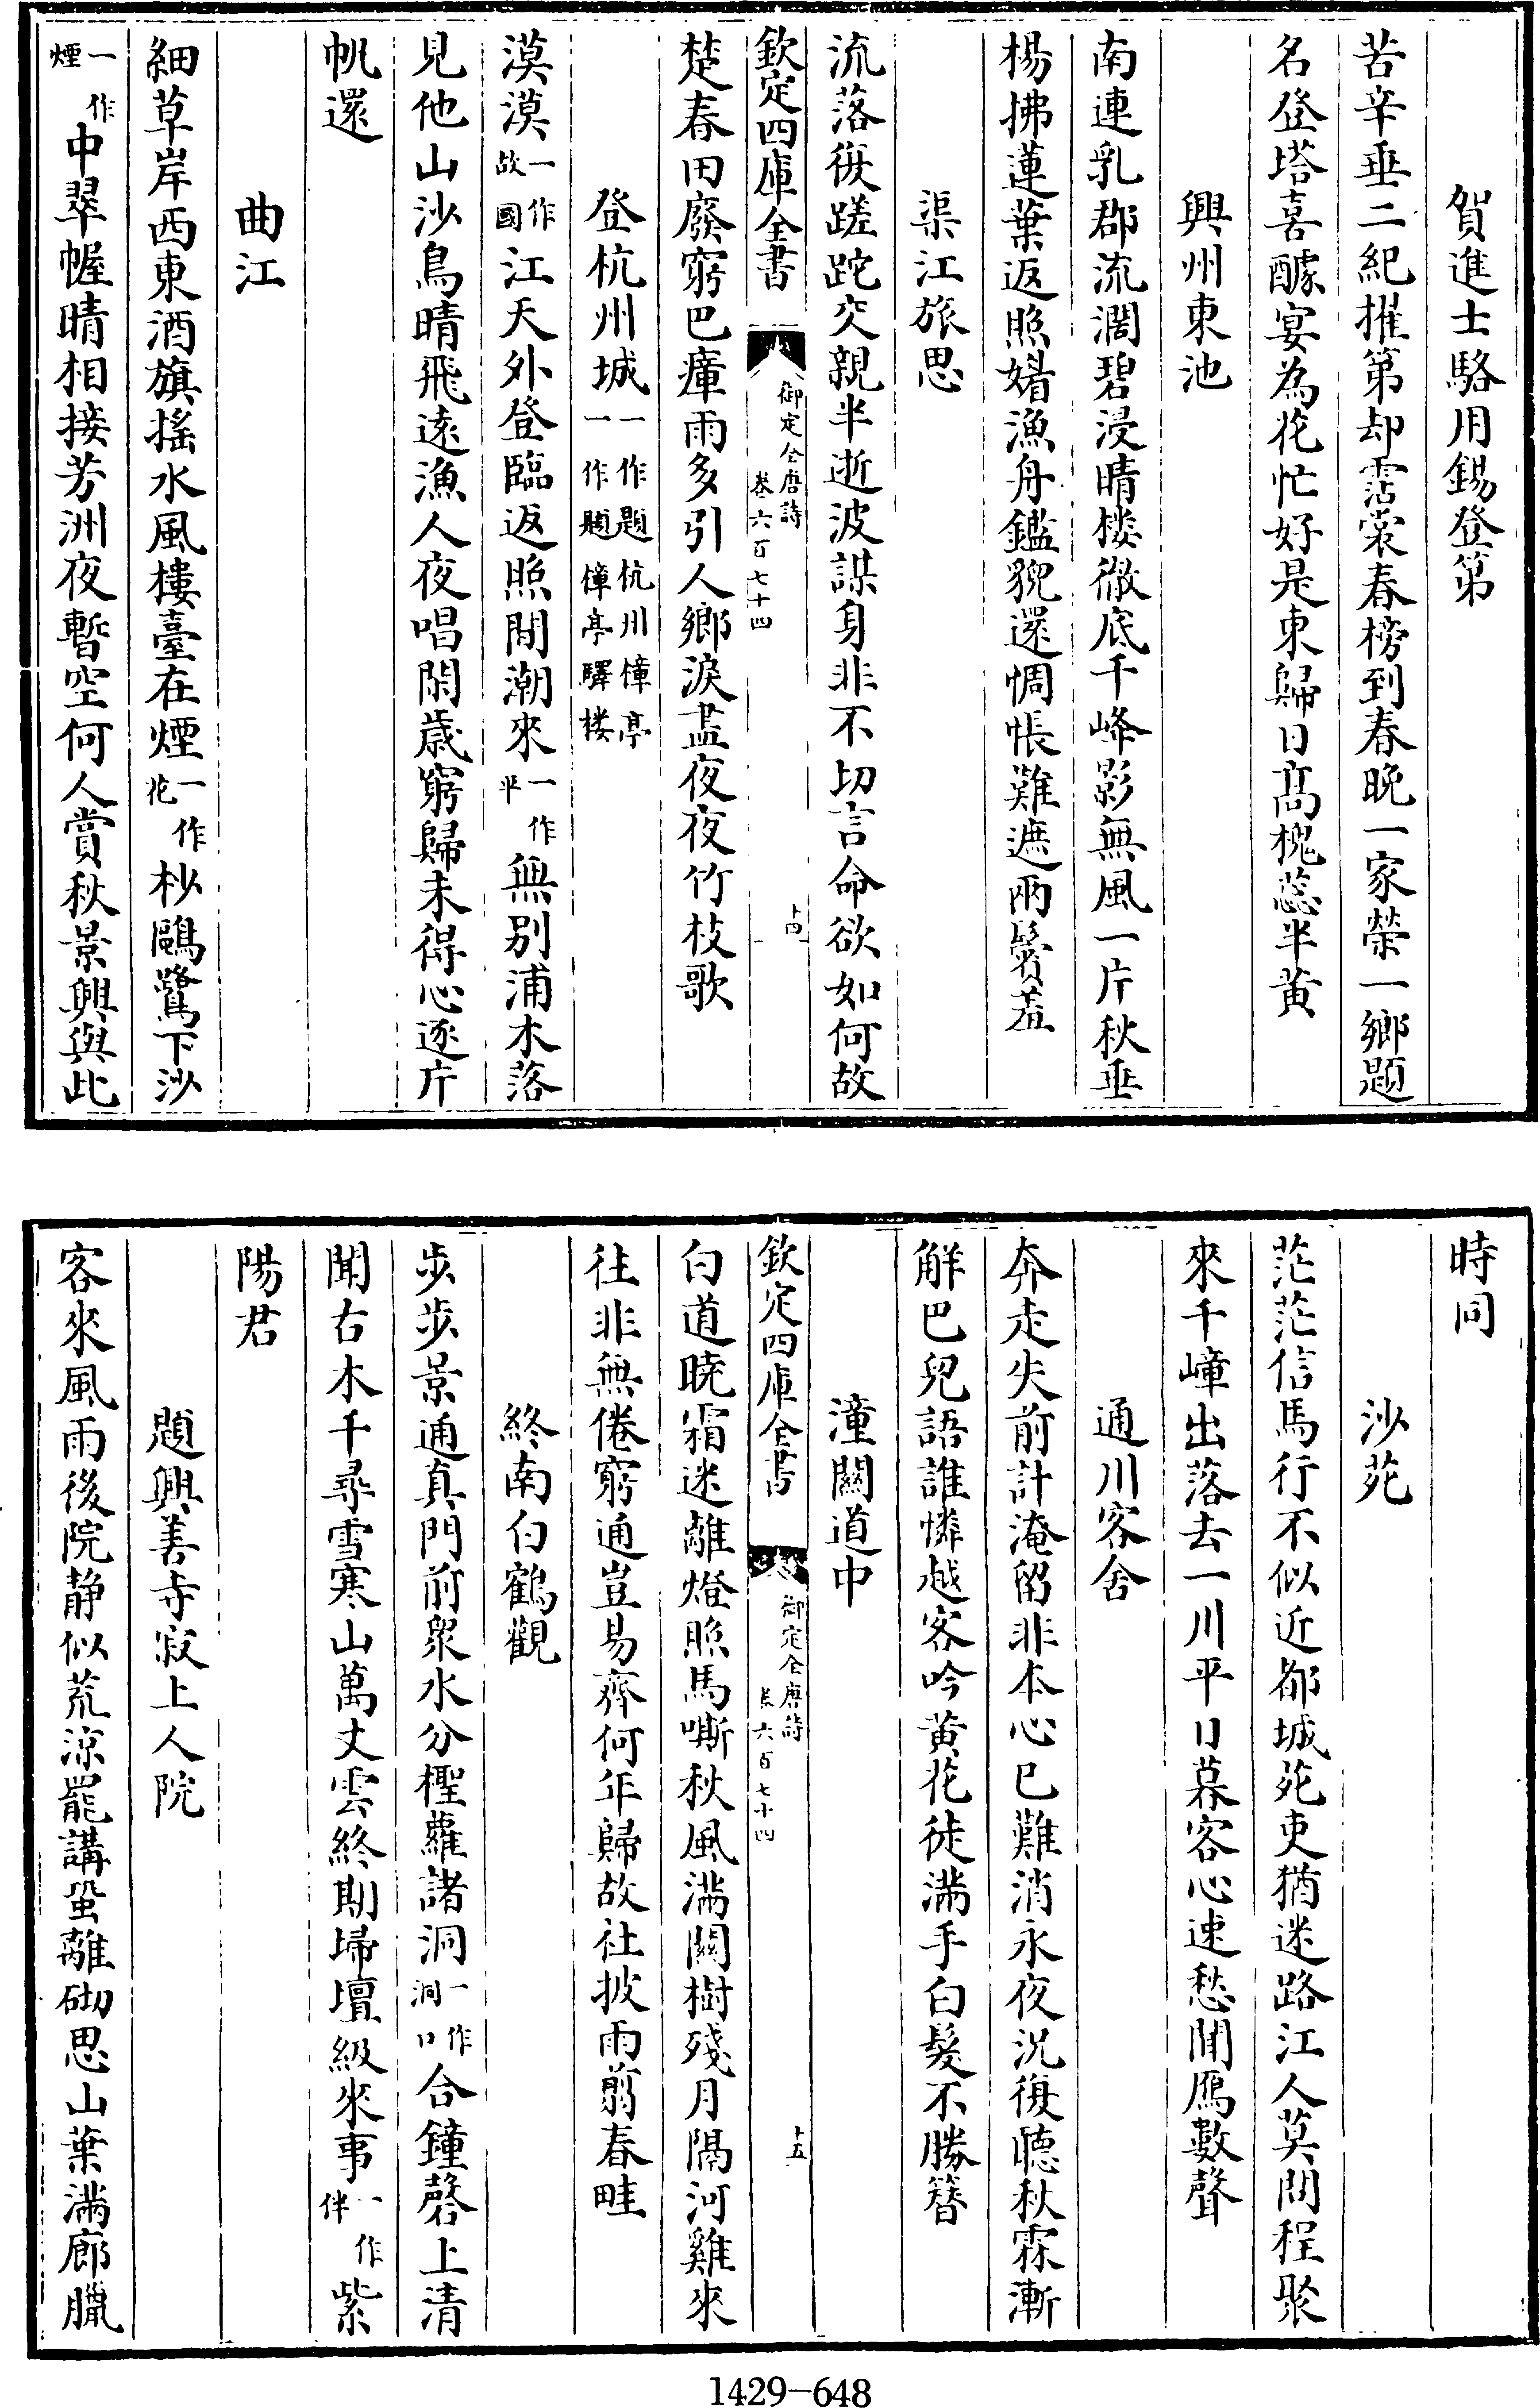 賀進士駱用錫登第
苦辛垂二紀擢第却霑裳春榜到春晚一家榮一鄉題
名登塔喜醵宴為花忙好是東歸日髙槐蕊半黄
興州東池
南連乳郡流濶碧浸晴樓徹底千峰影無風一片秋垂
楊拂蓮葉返照媚漁舟鑑貌還惆悵難遮兩鬢羞
渠江旅思
流落復蹉跎交親半逝波謀身非不切言命欲如何故
欽定四庫全書 御定全唐詩 卷六百七十四 十四
楚春田廢窮巴瘴雨多引人鄉淚盡夜夜竹枝歌
登杭州城一作題杭州樟亭一作題樟亭驛樓
漠漠一作故國江天外登臨返照間潮來一作平無别浦木落
見他山沙鳥晴飛遠漁人夜唱閑歲窮歸未得心逐片
帆還
曲江
細草岸西東酒旗搖水風樓臺在煙一作花杪鷗鷺下沙
一作煙中翠幄晴相接芳洲夜暫空何人賞秋景興與此
時同
沙苑
茫茫信馬行不似近都城苑吏猶迷路江人莫問程聚
來千嶂出落去一川平日暮客心速愁聞鴈數聲
通川客舍
奔走失前計淹留非本心已難消永夜況復聽秋霖漸
解巴兒語誰憐越客吟黄花徒滿手白髮不勝簪
潼關道中
白道曉霜迷離燈照馬嘶秋風滿關樹殘月隔河雞來
欽定四庫全書 御定全唐詩 卷六百七十四 十五
往非無倦窮通豈易齊何年歸故社披雨剪春畦
終南白鶴觀
步步景通真門前衆水分檉蘿諸洞一作洞口合鐘磬上清
聞古木千尋雪寒山萬丈雲終期埽壇級來事一作伴紫
陽君
題興善寺寂上人院
客來風雨後院静似荒涼罷講蛩離砌思山葉滿廊臘
1429-648